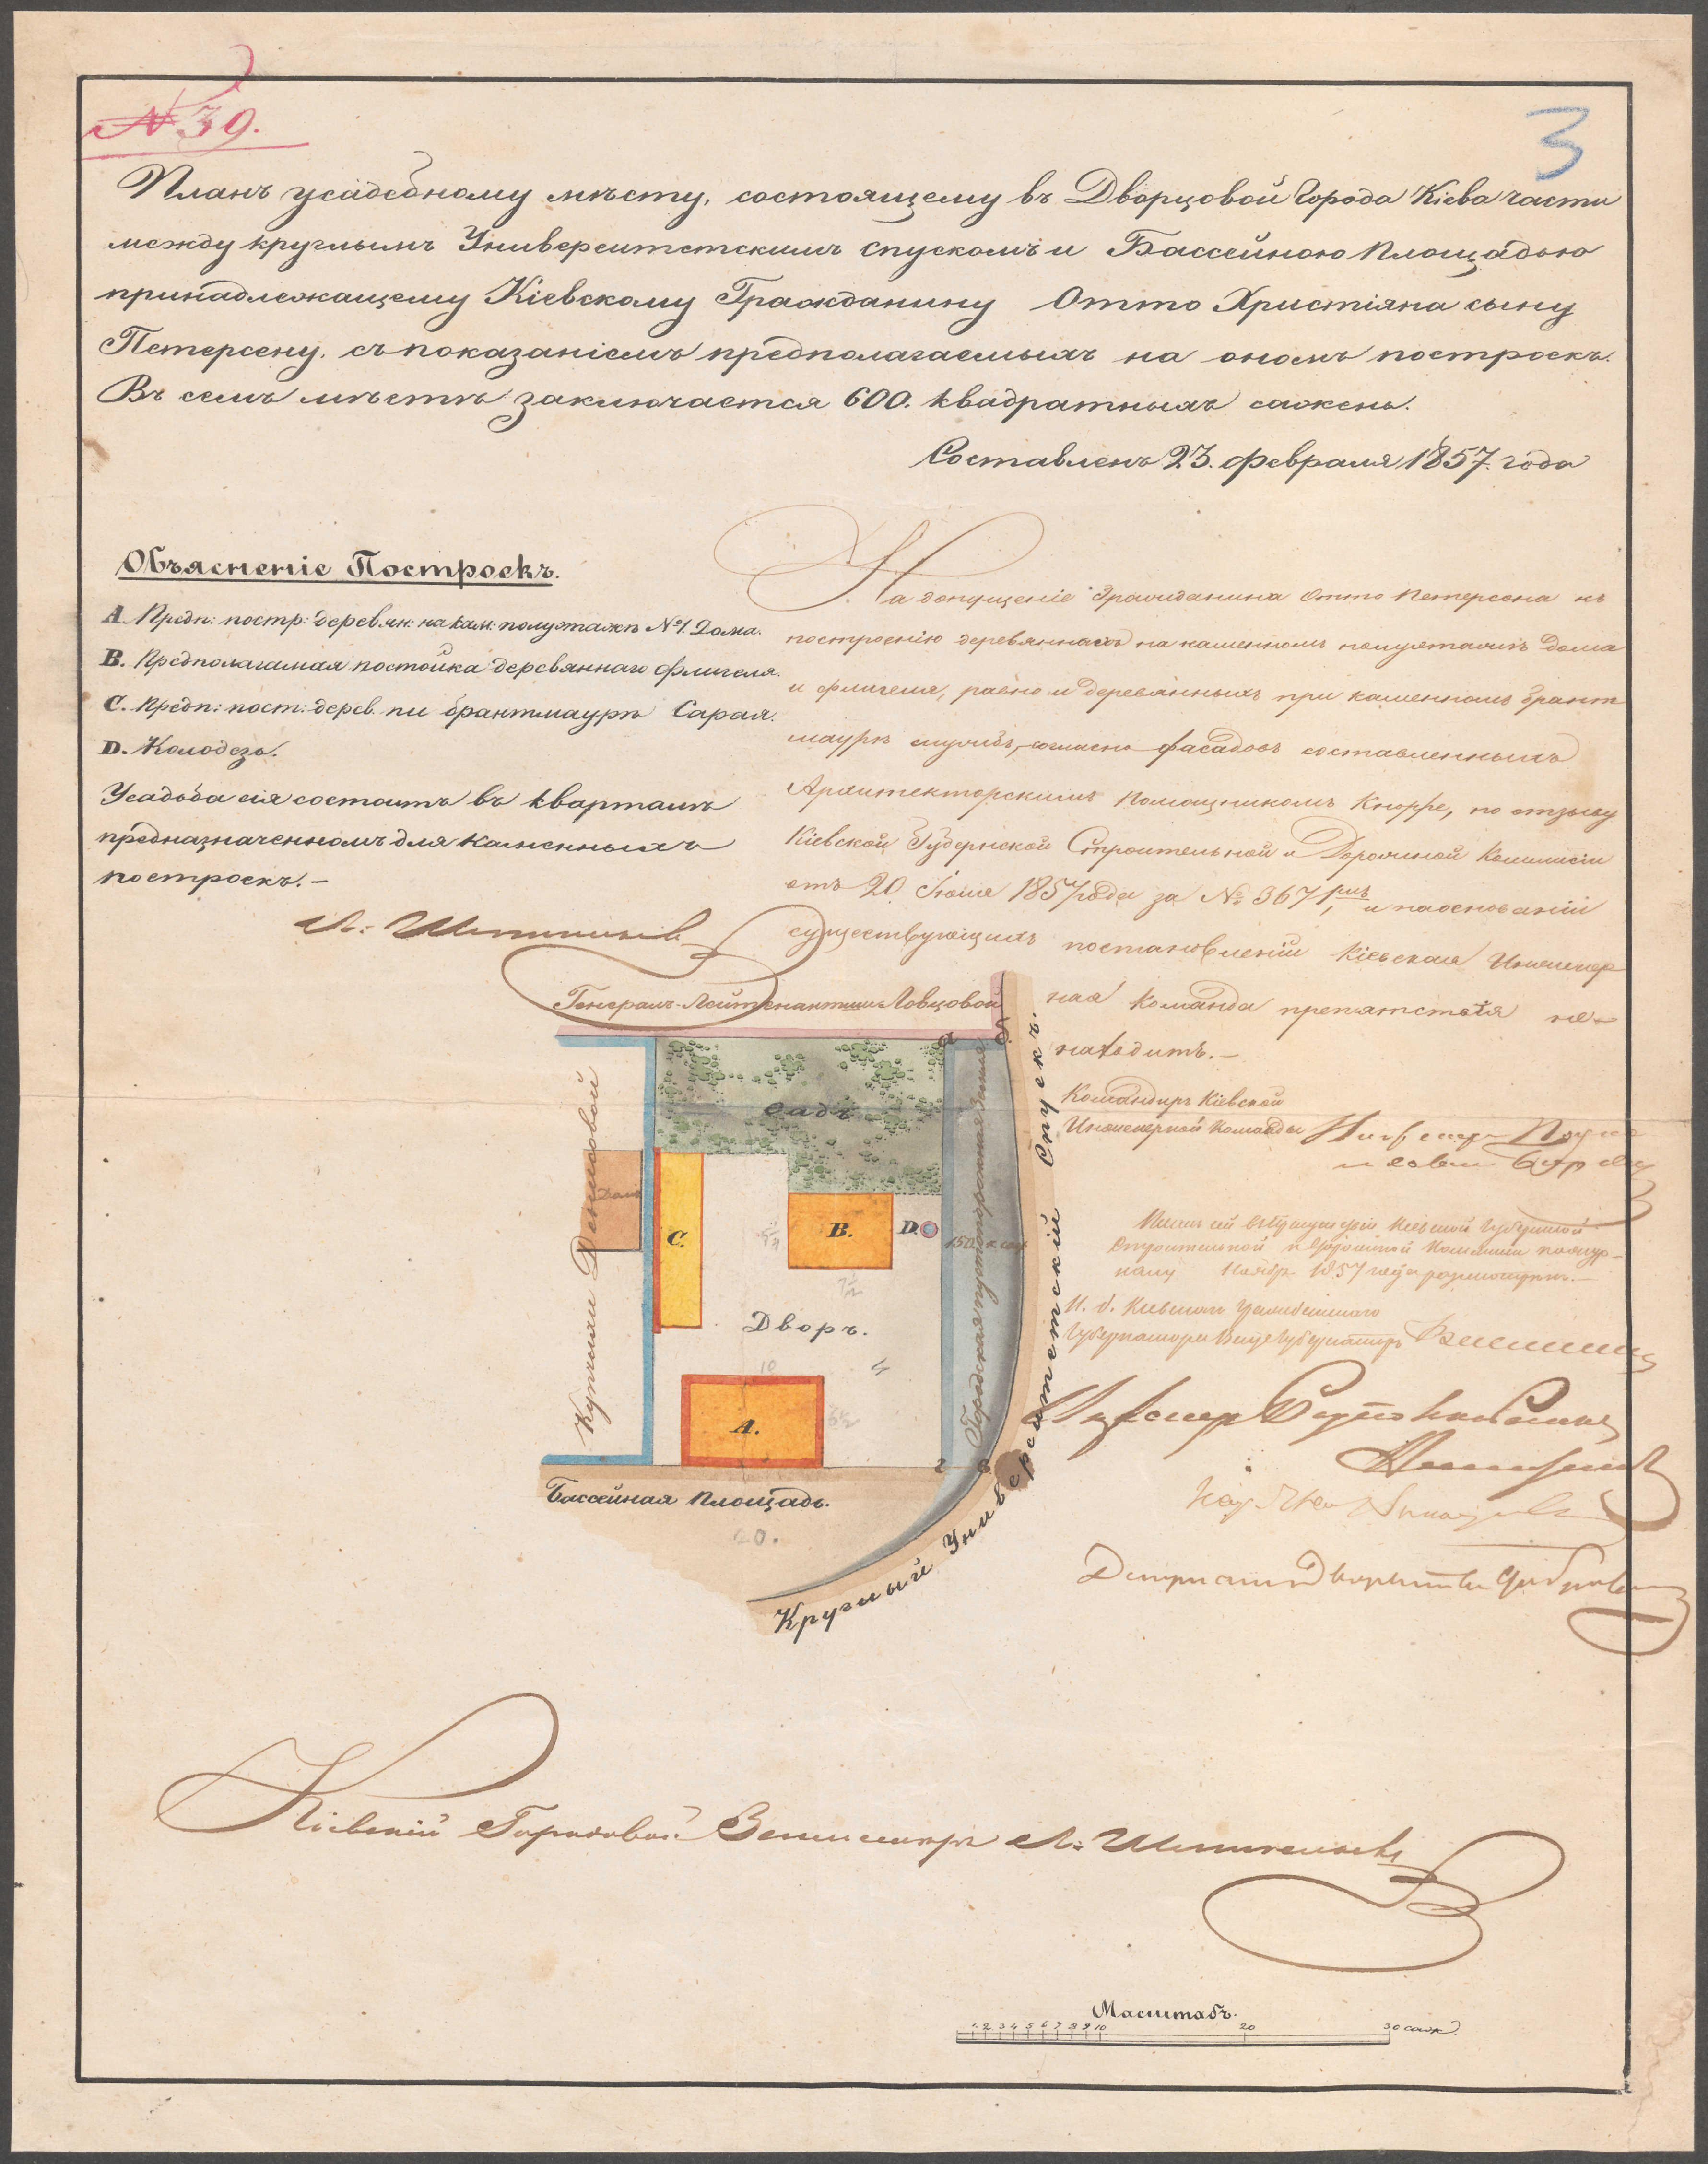 № 39.
3
Планъ усадебному мѣсту, состоящему въ Дворцовой Города Кіева части
между круглымъ Университетскимъ спускомъ и Бассейною Площадью
принадлежащему Кіевскому Гражданину Отто Христіяна сыну
Петерсену, съ показаніемъ предполагаемыхъ на ономъ построекъ.
Въ семъ мѣстѣ заключается 600. квадратныхъ сажень.
Составленъ 23. февраля 1857. года
Объясненіе Построекъ.
A Предп: постр: деревян: на кам: полуэтажѣ №1. Дома.
B. Предполагаемая постойка деревяннаго флигеля.
C. Предп: пост: дерев. пи брантмаурѣ Сарая.
D. Колодезь.
Усадьба сія состоитъ въ кварталѣ
предназначенномъ для каменныхъ
построекъ.—
На допущеніе Гражданина Отто Петерсона къ
построенію деревянныхъ на каменномъ полуэтажѣ дома
и флигеля, равно и деревянныхъ при каменномъ брант
маурѣ службъ, согласно фасадовъ составленныхъ
Архитекторскимъ Помощникомъ Кнорре, по отзыву
Кіевской Губернской Строительной и Дорожной Коммисіи
отъ 20 Іюля 1857 года за № 3671, и на основаніи
существующихъ постановленій Кіевская Инженер
ная Команда препятствія не
находитъ.—
Командиръ Кіевской
Инженерной Команды
Генералъ-Лейтенантши Ловцовой
а б
садъ
Купчихи
Домъ
C.
B.
D.
150. к. саж
Городская пустопорожная земля
Дворъ.
10
A.
г в
Бассейная Площадь.
20.
Круглый Университетскій Спускъ.
1857 года
И. д. Кіевскаго Гражданскаго
Губернатора Вице Губернаторъ
Кіевскій Городовой
Масштабъ.
1 2 3 4 5 6 7 8 9 10 20 30 саж.